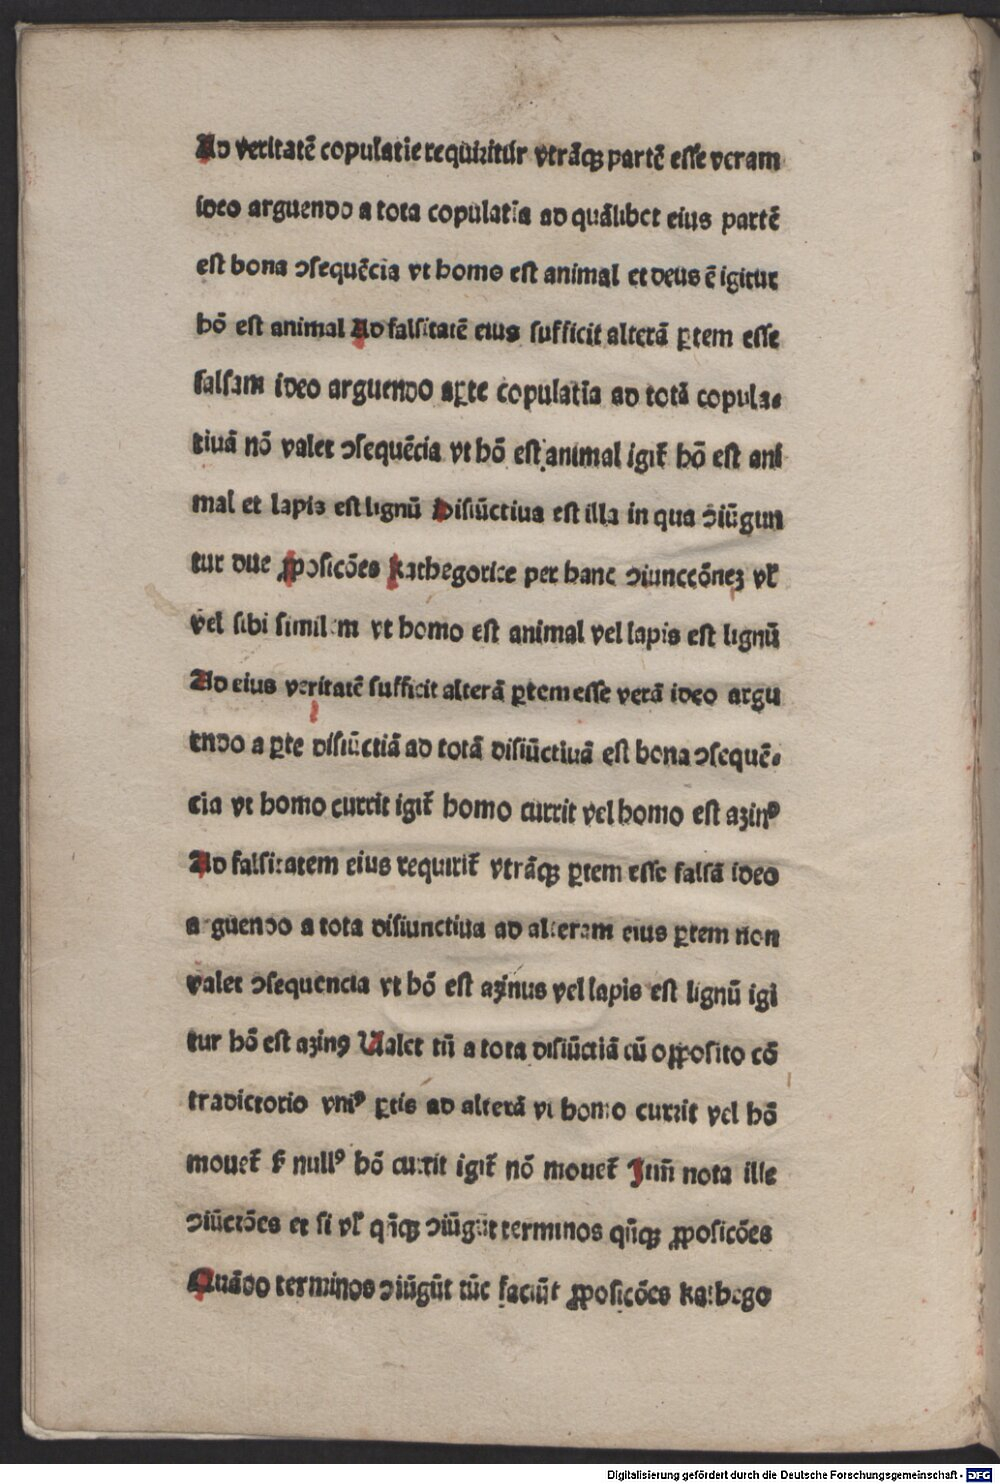 Ad veritatē copulatie requiritur vtrāqꝫ partē eſſe veram
ideo arguendo a tota copulatīa ad quālibet eius partē
eſt bona ↄſequēcia vt homo eſt animal et deus ē igitur
hō eſt animal Ad falſitatē eius ſufficit alterā ꝑtem eſſe
falſam ideo arguendo aꝑte copulatīa ad totā copula⸗
tiuā nō valet ↄſequēcia vt hō eſt animal igit᷑ hō eſt ani
mal et lapis eſt lignū Diſiūctiua eſt illa in qua ↄiūgun
tur due ꝓpoſicōes kathegorice per hanc ↄiunccōneꝫ vl̓
vel ſibi ſimilem vt homo eſt animal vel lapis eſt lignū
Ad eius veritatē ſufficit alterā ꝑtem eſſe verā ideo argu
endo a ꝑte diſiūctiā ad totā diſiūctiuā eſt bona ↄſequē⸗
cia vt homo currit igit᷑ homo currit vel homo eſt azinꝰ
Ad falſitatem eius requirit᷑ vtrāqꝫ ꝑtem eſſe falſā ideo
arguendo a tota diſiunctiua ad alteram eius ꝑtem non
valet ↄſequencia vt hō eſt azinus vel lapis eſt lignū igi
tur hō eſt azinꝰ Ualet tn̄ a tota diſiūctiā cū oꝓpoſito cō
tradictorio vniꝰ ꝑtis ad alterā vt homo currit vel hō
mouet᷑ ſꝫ nullꝰ hō currit igit᷑ nō mouet᷑ Itm̄ nota ille
ↄiūctōes et ſi vl̓ qn̄qꝫ ↄiūgūt terminos qn̄qꝫ ꝓpoſicōes
Quādo terminos ↄiūgūt tūc faciūt ꝓpoſicōes kathego
Digitalisierung gefördert durch die Deutsche Forschungsgemeinschaft - DFG